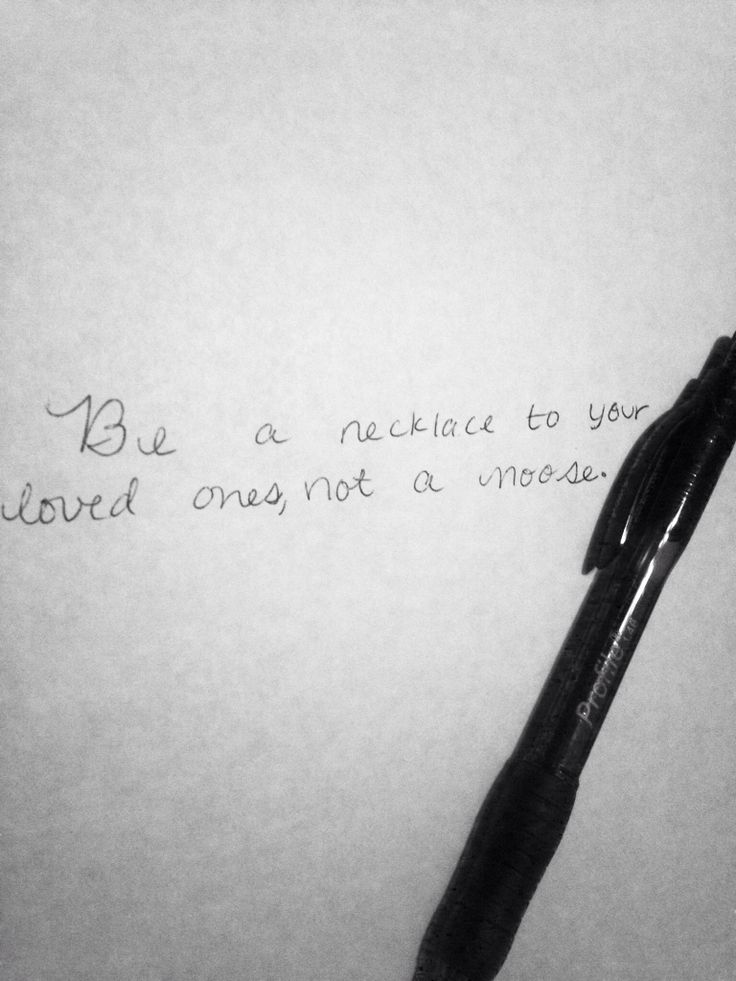 Be a necklace to your
loved ones, not a noose.
Profile